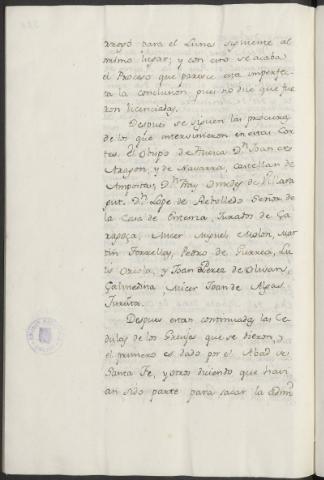 rrogó para el Lunes siguiente al
mismo lugar; y con esto se acaba
el Proceso que parece esta imperfec-
ta la conclusion, pues no dice que fue
ron licenciadas.
Despues se siguen las procuras
de los que intervinieron en estas Cor-
tes. el Obispo de Huesca Dn. Joan de
Aragon, y de Navarra, Castellan de
Amposta; Dn. fray
Dn. Lope de Rebolledo Señor de
la Casa de Entenza, Jurados de Ça
ragoça, Micer Miguel Molon, Mar
tin Torrellas, Pedro de Gurrea, Lu
is Oriola, y Joan Perez de Olivan;
Çalmedina Micer Joan de Algas.
Juruta.
Despues estan continuadas las Ce
dulas de los Greujes que se dieron, y
el primero es dado por el Abad de
Santa Fe, y otros diciendo que havi
an sido parte para sacar la